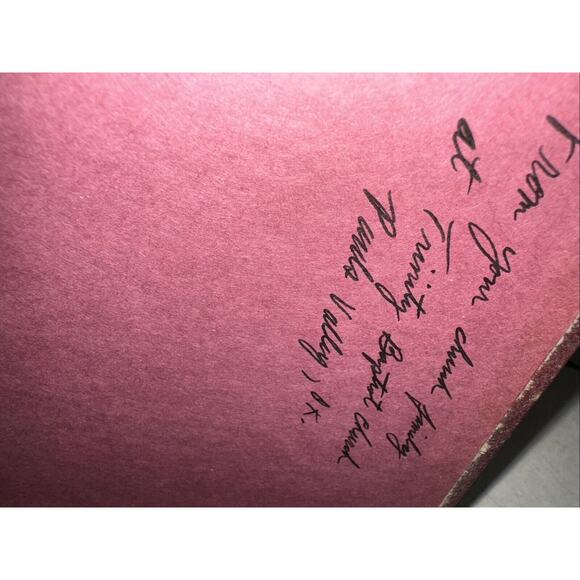 From your church family
at
Trinity Baptist Church
Pauls Valley, Ok.